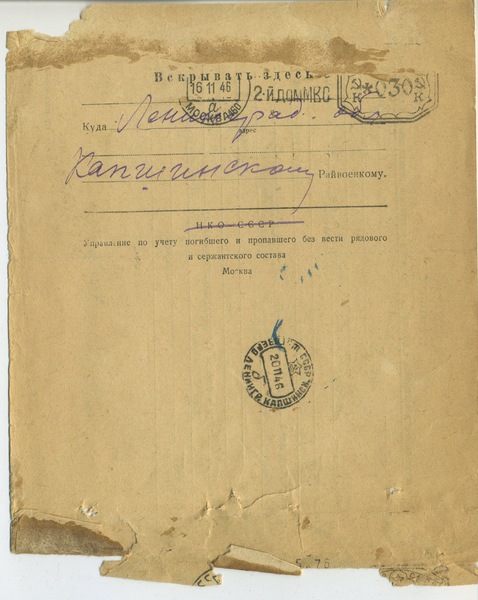 Вскрывать здесь
16 11 46
МОСКВА
2-й ДОМ МКС
030
К К
Куда Ленинград. обл.
адрес
Капшинскому Райвоенкому.
НКО СССР
Управление по учету погибшего и пропавшего без вести рядового
и сержантского состава
Москва
20 11 46
КАПШИНСК.